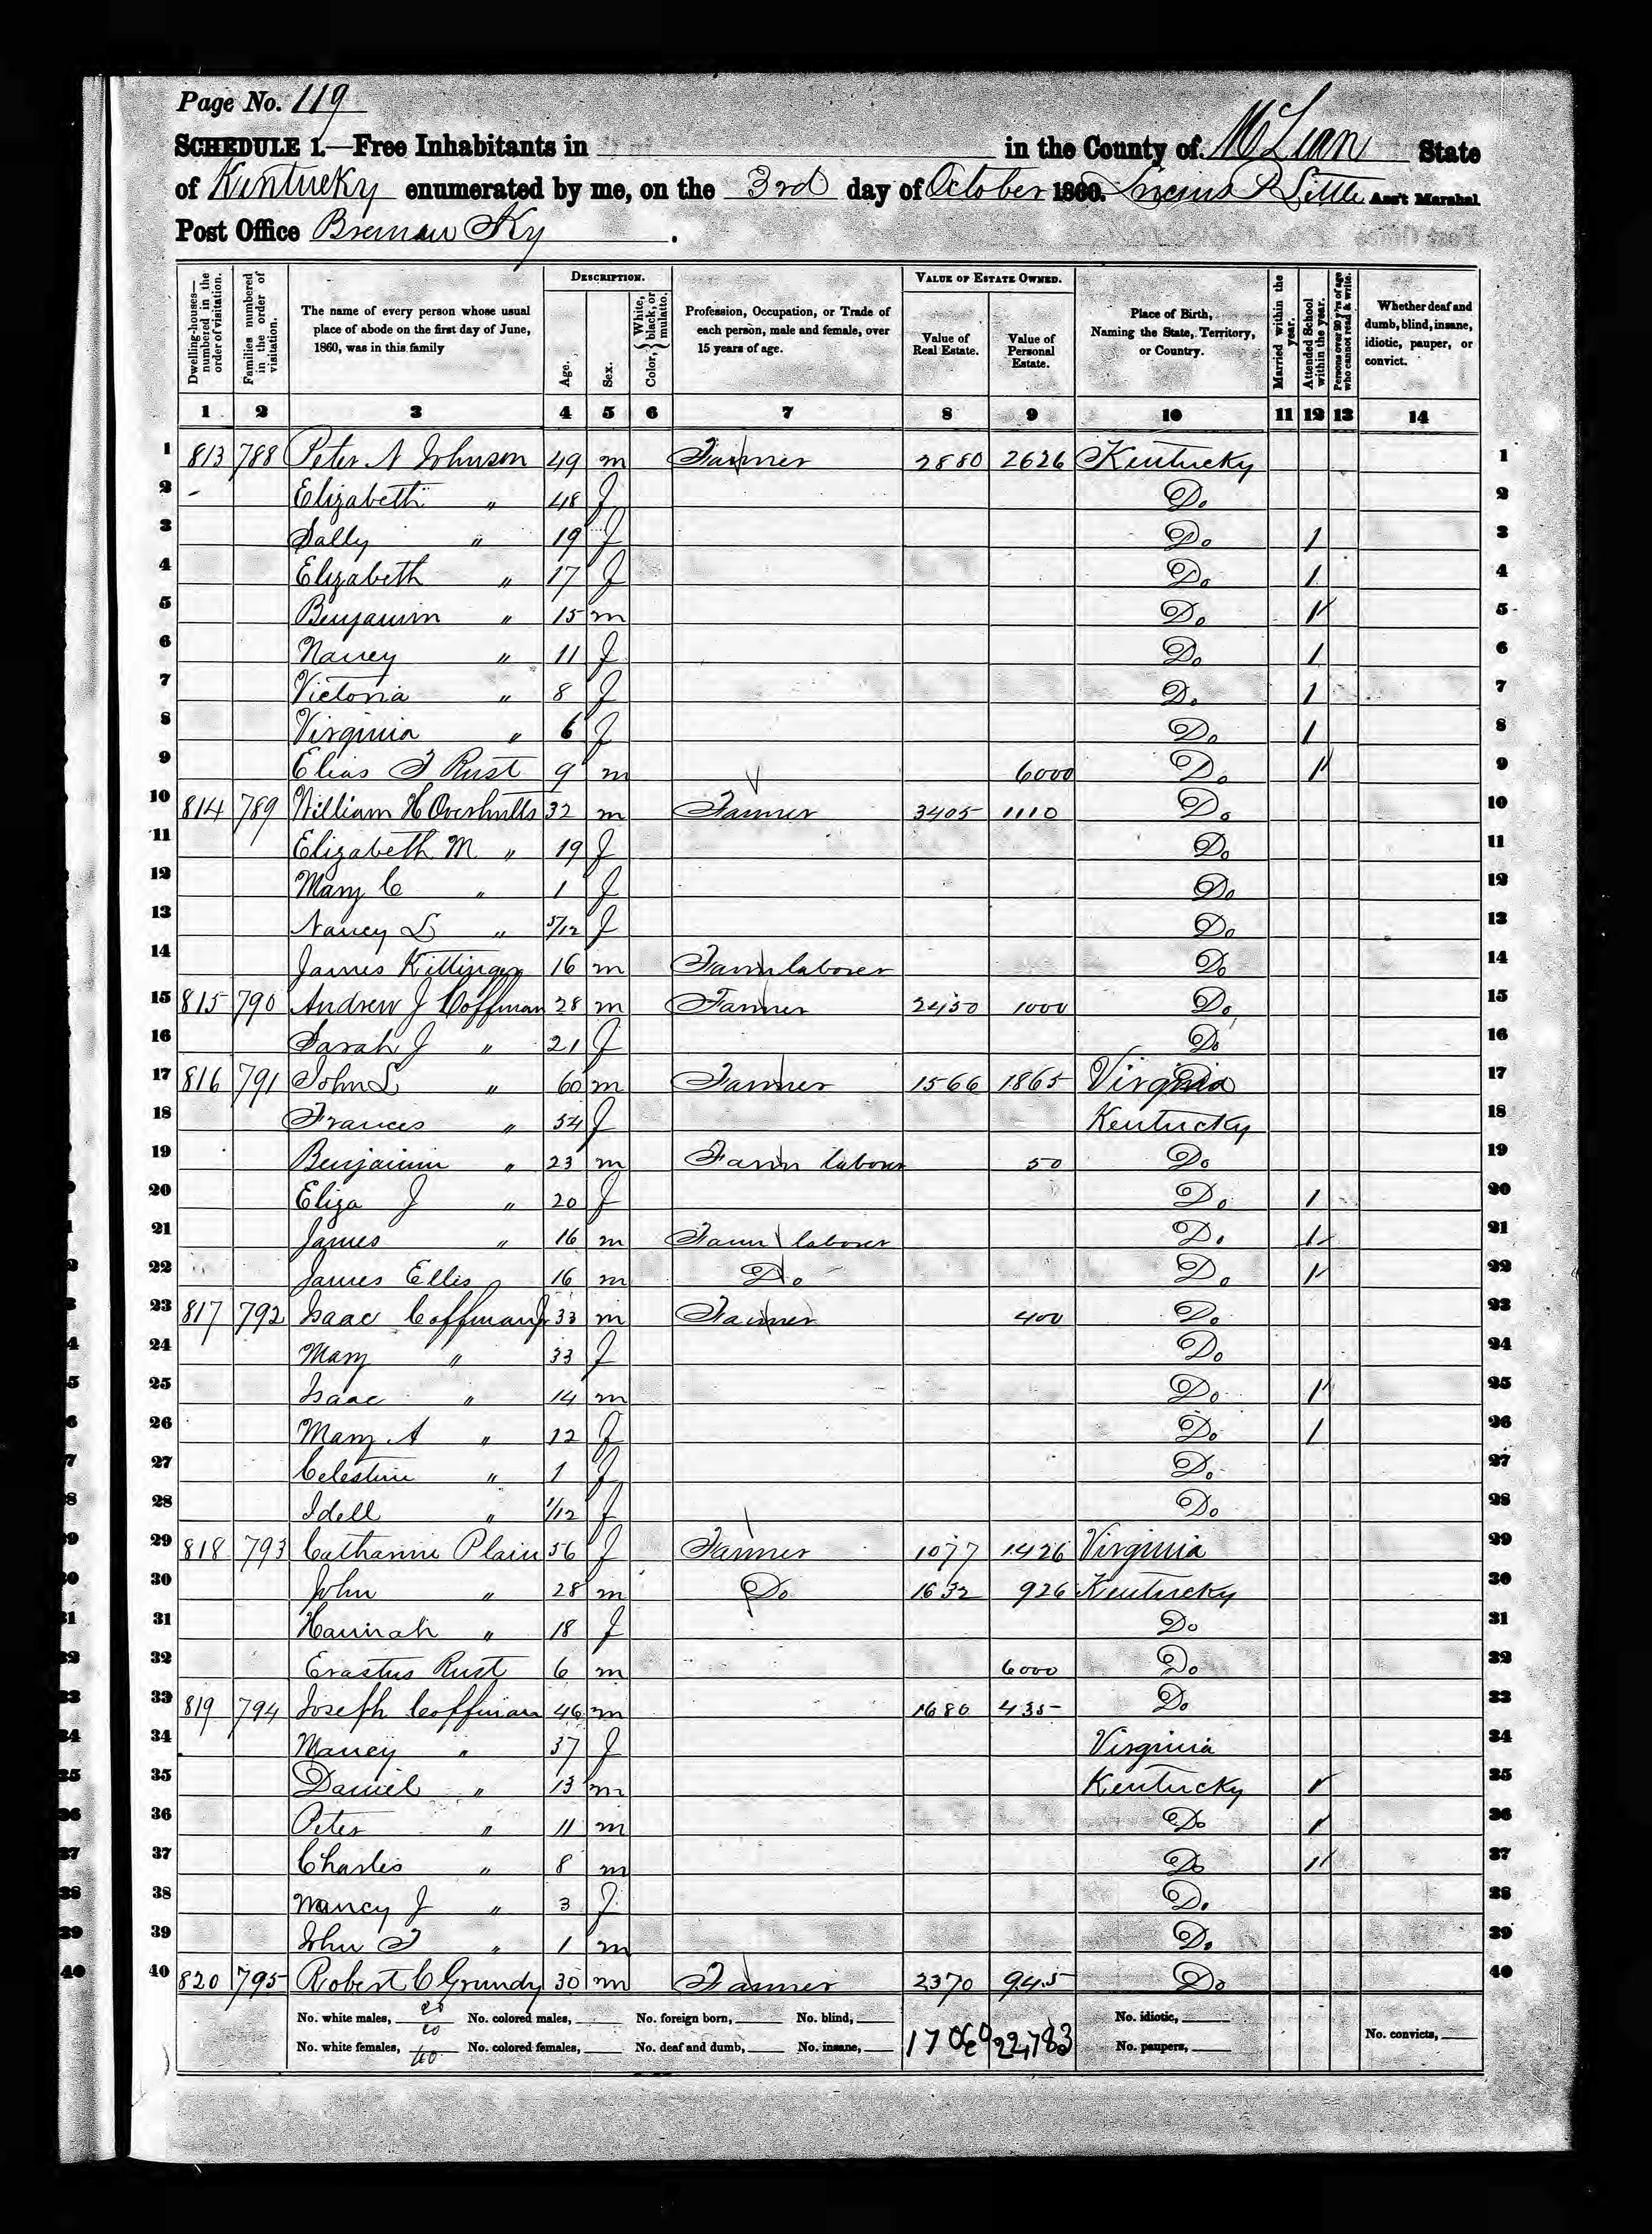 Page No. 119
SCHEDULE 1.—Free Inhabitants in in the County of McLean State
of Kentucky enumerated by me, on the 3rd day of October 1860. Lucius P Little Ass't Marshal
Post Office Bremen Ky.
DESCRIPTION. VALUE OF ESTATE OWNED.
Dwelling-houses—numbered in the order of visitation.
Families numbered in the order of visitation.
The name of every person whose usual place of abode on the first day of June, 1860, was in this family
Age.
Sex.
Color, { White, black, or mulatto.
Profession, Occupation, or Trade of each person, male and female, over 15 years of age.
Value of Real Estate.
Value of Personal Estate.
Place of Birth, Naming the State, Territory, or Country.
Married within the year.
Attended School within the year.
Persons over 20 y'rs of age who cannot read & write.
Whether deaf and dumb, blind, insane, idiotic, pauper, or convict.
1 2 3 4 5 6 7 8 9 10 11 12 13 14
1 813 788 Peter N Johnson 49 m Farmer 2880 2626 Kentucky 1
2 Elizabeth " 48 f Do 2
3 Sally " 19 f Do 1 3
4 Elizabeth " 17 f Do 1 4
5 Benjamin " 15 m Do 1 5
6 Nancy " 11 f Do 1 6
7 Victoria " 8 f Do 1 7
8 Virginia " 6 f Do 1 8
9 Elias F Rust 9 m 6000 Do 1 9
10 814 789 William H Overhults 32 m Farmer 3405 1110 Do 10
11 Elizabeth M " 19 f Do 11
12 Mary C " 1 f Do 12
13 Nancy L " 5/12 f Do 13
14 James Kittinger 16 m Farm laborer Do 14
15 815 790 Andrew J Coffman 28 m Farmer 2450 1000 Do 15
16 Sarah J " 21 f Do 16
17 816 791 John L " 60 m Farmer 1566 1865 Virginia 17
18 Frances " 54 f Kentucky 18
19 Benjamin " 23 m Farm labour 50 Do 19
20 Eliza J " 20 f Do 1 20
21 James " 16 m Farm laborer Do 1 21
22 James Ellis 16 m Do Do 1 22
23 817 792 Isaac Coffman Jr 33 m Farmer 400 Do 23
24 Mary " 33 f Do 24
25 Isaac " 14 m Do 1 25
26 Mary A " 12 f Do 1 26
27 Celestine " 1 f Do 27
28 Idell " 1/12 f Do 28
29 818 793 Catharine Plain 56 f Farmer 1077 1426 Virginia 29
30 John " 28 m Do 1632 926 Kentucky 30
31 Hannah " 18 f Do 31
32 Erastus Rust 6 m 6000 Do 32
33 819 794 Joseph Coffman 46 m 1680 435 Do 33
34 Nancy " 37 f Virginia 34
35 Daniel " 13 m Kentucky 1 35
36 Peter " 11 m Do 1 36
37 Charles " 8 m Do 1 37
38 Nancy J " 3 f Do 38
39 John F " 1 m Do 39
40 820 795 Robert C Grundy 30 m Farmer 2370 945 Do 40
No. white males, 20 No. colored males, No. foreign born, No. blind, No. idiotic,
No. white females, 20 No. colored females, No. deaf and dumb, No. insane, 22,783 No. paupers, No. convicts,
40